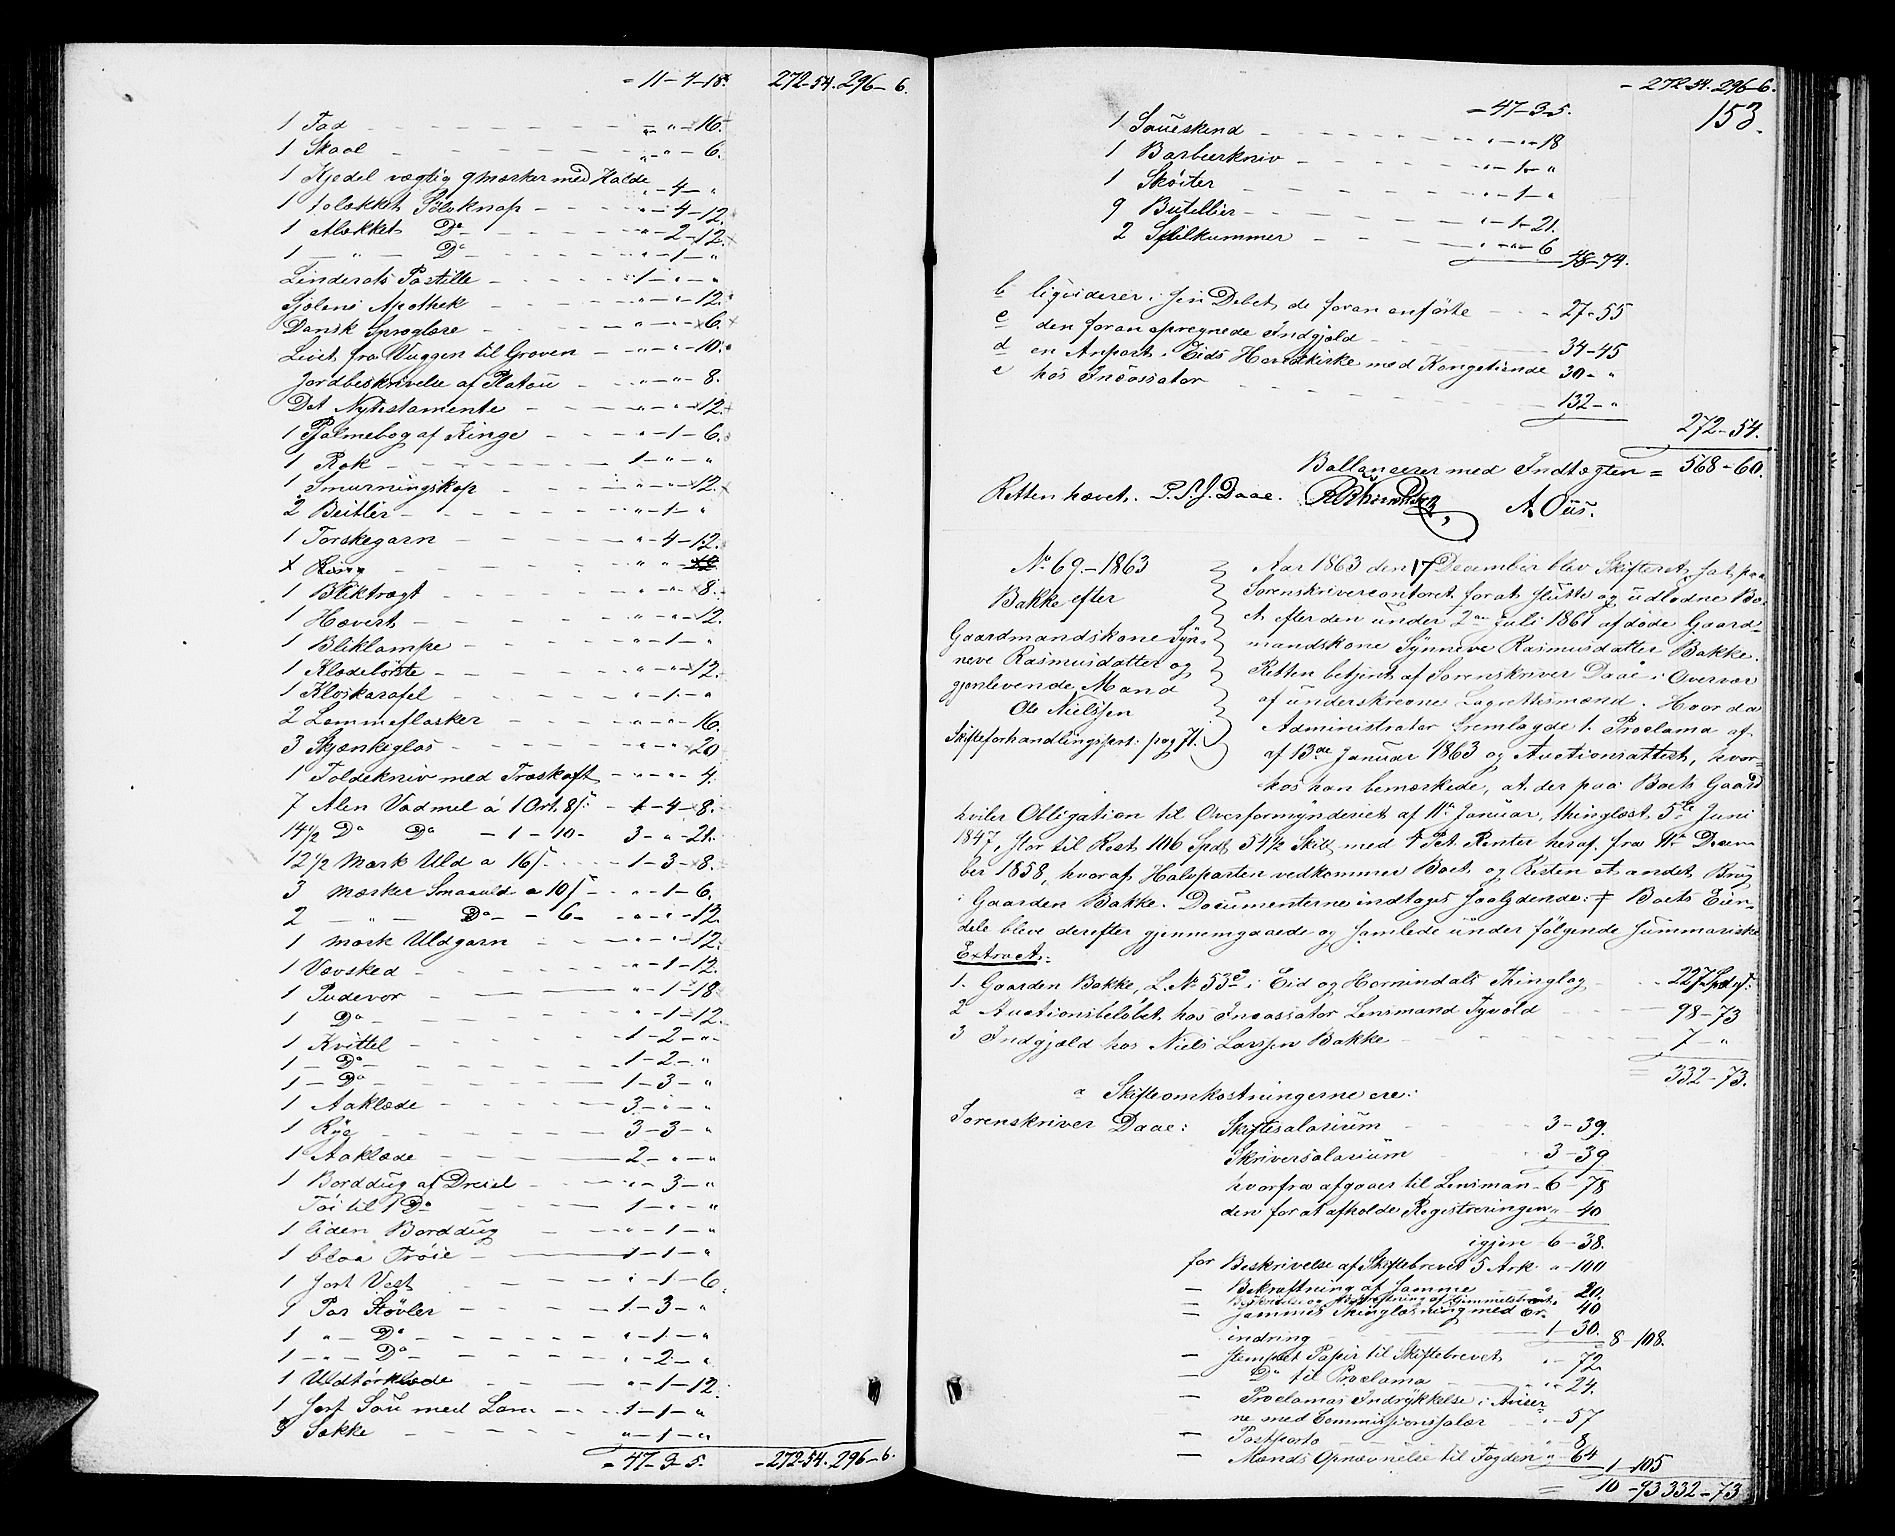 „ 11 – 4 – 18. 272-54. 296 – 6.
1 Fad – „ – „ – 16.
1 Skaal – „ – „ – 6.
1 Kjedel vægtig 9 Mærker med Halde „ – 4 – „
1 Sølvknap – „ – 4 – 12.
1 Do – „ – 2 – 12.
1 – „ – Do – „ – 1 – „
Linderots Postille – 1 – „ – „
Sjelens Apothek – „ – „ – 12.
Dansk Sproglære – „ – „ – 6.
Livet fra Vuggen til Graven – „ – „ – 10.
Jordbeskrivelse af Platou – „ – „ – 8.
Det Nytestamente – „ – „ – 12.
1 Psalmebog af Kingo – „ – 1 – 6.
1 Rok – 1 – „ – „
1 Smurningskop – „ – „ – 12.
2 Beitler – „ – 1 – „
1 Torskegarn – „ – 4 – 12.
1 Bliktragt – „ – „ – 8.
1 Hævert – „ – „ – 12.
1 Bliklampe – „ – 1 – „
1 Klædebørste – „ – „ – 12.
1 Klukarafel – „ – 1 – „
2 Lommeflasker – „ – „ – 16.
3 Skjænkeglas – „ – „ – 20
1 Toldekniv med Træskaft – „ – „ – 4.
7 Alen Vadmel á 1 Ort. 8 s. – 1 – 4 – 8.
14½ Do Do – 1 – 10 – 3 – „ – 21.
12½ Mark Uld a 16 s. – 1 – 3 – 8.
3 Mærker Smaauld a 10 s – „ – 1 – 6.
2 – „ – Do – – 6 – „ – „ – 12
1 Mark Uldgarn – „ – „ – 12.
1 Vævsked – „ – 1 – 12.
1 Pudevor – „ – 1 – 18
1 Do – „ – 1 – 12.
1 Kvittel – 1 – 2 – „
1 – Do – 1 – 2 – „
1 – Do – 1 – 3 – „
1 Aaklæde – 3 – „ – „
1 Rye – 3 – 3 – „
1 Aaklæde – 2 – „ – „
1 Borddug af Dreiel – „ – 3 – „
Tøi til 1 Do – 1 – „ – „
1 liden Borddug – „ – 1 – „
1 blaa Trøie – 1 – 1 – „
1 sort Vest – „ – 1 – 6.
1 Par Støvler – 1 – 3 – „
1 „ – Do – „ – 1 – „
1 – „ – Do – „ – 2 – „
1 Uldtørklæde – „ – 1 – 12.
1 sort Sau med Lam – 1 – 1 – „
9 Sække – „ – 1 – „
„ 47 – 3 – 5. – 272-54. 296 – 6.
– 272-54. 296-6.
– 47 – 3 – 5.
153.
1 Saueskind – „ – „ – 18
1 Barbeerkniv – „ – 1 – „
1 Skøiter – „ – 1 – „
9 Butellier – „ – 1 – 21.
2 Spilkummer – „ – „ – 6 48 – 74.
b liqviderer i sin Debet de foran anførte – 27 – 55
c den foran opregnede Indgjæld – 34 – 45
d en Anpart i Eids Hovedkirke med Kongetiende 30 – „
e hos Incassator – 132 – „
272 – 54.
Ballancerer med Indtægten = 568 – 60.
Retten hævet. L. P. J. Daae. A. Ous.
No 69. – 1863
Bakke efter
Gaardmandskone Syn-
neve Rasmusdatter og
gjenlevende Mand
Ole Nielssen
Skifteforhandlingsprt. pag 71.
Aar 1863 den 17 December blev Skifteret sat paa
Sorenskrivercontoret for at slutte og udlodne Bo-
et efter den under 2den Juli 1861 afdøde Gaard-
mandskone Synneve Rasmusdatter Bakke.
Retten betjent af Sorenskriver Daae i Overvær
af underskrevne Lagrettesmænd. Hvor da
Administrator fremlagde 1. Proclama af
af 13de Januar 1863 og Auctionsattest, hvor-
hos han bemærkede, at der paa Boets Gaard
hviler Obligation til Overformynderiet af 11te Januar, thinglæst 5te Juni
1847, stor til Rest 106 Spd 54½ Skill med 4 Pct. Renter heraf fra 11te Decem-
ber 1858, hvoraf Halvparten vedkommer Boet og Resten et andet Brug
i Gaarden Bakke. Documenterne indtages saalydende: † Boets Eien-
dele bleve derefter gjennemgaaede og samlede under følgende summariske
Extract:
1. Gaarden Bakke, L. No 53 a i Eid og Hornindals Thinglag – 227 Spd „ s.
2 Auctionsbeløbet hos Incassator Lensmand Tyvold – 98 – 73
3 Indgjæld hos Niels Larssen Bakke – 7 – „
332 – 73.
a Skifteomkostningerne ere:
Sorenskriver Daae: Skiftesalarium – 3 – 39.
Skriversalarium – 3 – 39
hvorfra afgaaer til Lensman- 6 – 78
den for at afholde Registreringen „ – 40
igjen 6 – 38.
for Beskrivelse af Skiftebrevet 5 Ark „ – 100
– Bekræftning af Samme – „ – 20.
– Beskrivelse og Bekræftning af Gimmelsbrevet „ 40
– Sammes Thinglæsning med Er-
indring – 1 – 30. 8 – 108.
– stemplet Papir til Skiftebrevet „ – 72.
– Do til Proclama – „ – 24.
– Proclamas Indrykkelse i Aviser-
ne med Commissionssalær – „ – 57
– Postporto – „ – 8
– Mænds Opnævnelse til Fogden „ – 64 1 – 105
= 10 – 93 332 – 73